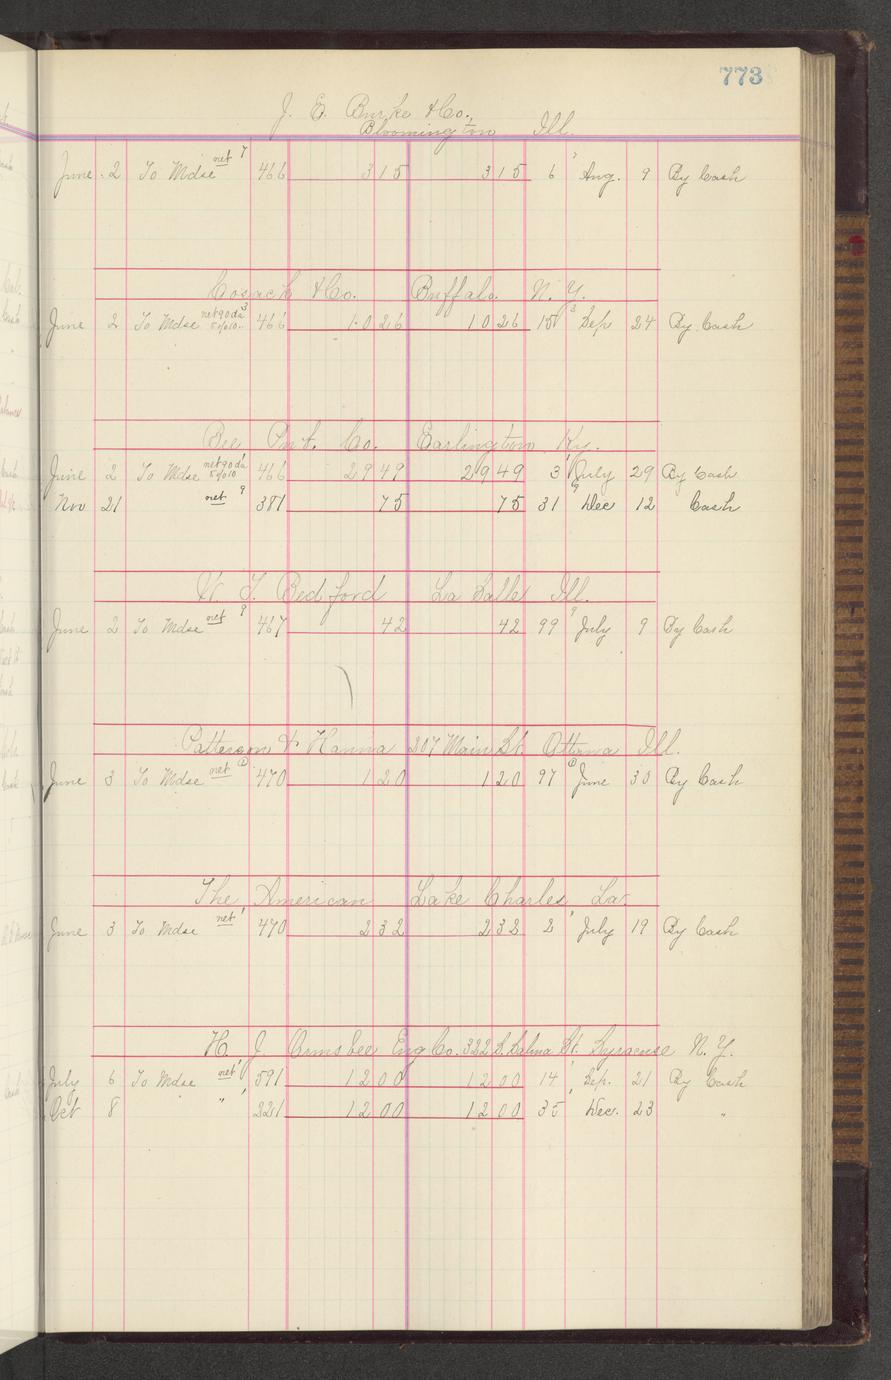 773
J. E. Burke & Co.,
Bloomington Ill.
June 2 To Mdse net 7 466 3 15 3 15 6 7 Aug. 9 By Cash
Cosack & Co. Buffalo N. Y.
June 2 To Mdse net 90 da 5%10 3 466 10 26 10 26 15 3 Sep 24 By Cash
Bee Pnt. Co. Earlington Ky.
June 2 To Mdse net 90 da 5%10 1 466 29 49 29 49 3 1 July 29 By Cash
Nov 21 net 9 381 75 75 31 9 Dec 12 Cash
W. T. Bedford La Salle Ill.
June 2 To Mdse net 9 467 42 42 99 9 July 9 By Cash
Patterson & Hanna 207 Main St. Ottawa Ill.
June 3 To Mdse net 470 1 20 1 20 97 June 30 By Cash
The American Lake Charles La.
June 3 To Mdse net 1 470 2 32 2 32 2 1 July 19 By Cash
H. J. Ormsbee Eng Co. 322 S. Salina St. Syracuse N. Y.
July 6 To Mdse net 1 591 12 00 12 00 14 1 Sep. 21 By Cash
Oct 8 " 1 221 12 00 12 00 35 1 Dec. 23 "